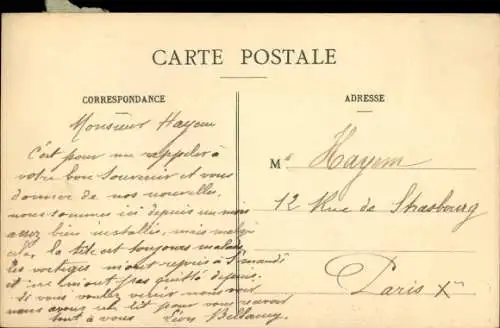 CARTE POSTALE
CORRESPONDANCE
ADRESSE
Monsieur Hayem
C'est pour me rappeler à
votre bon souvenir et vous
donner de nos nouvelles.
nous sommes ici depuis un mois
assez bien installés, mais malgré
cela, la tête est toujours malade
les vertiges m'ont repris à St mandé
et ne m'ont pas quitté depuis.
Si vous voulez venir nous voir
nous avons un lit pour vous recevoir
tout à vous Léon Bellancy
M Hayem
12 Rue de Strasbourg
Paris X